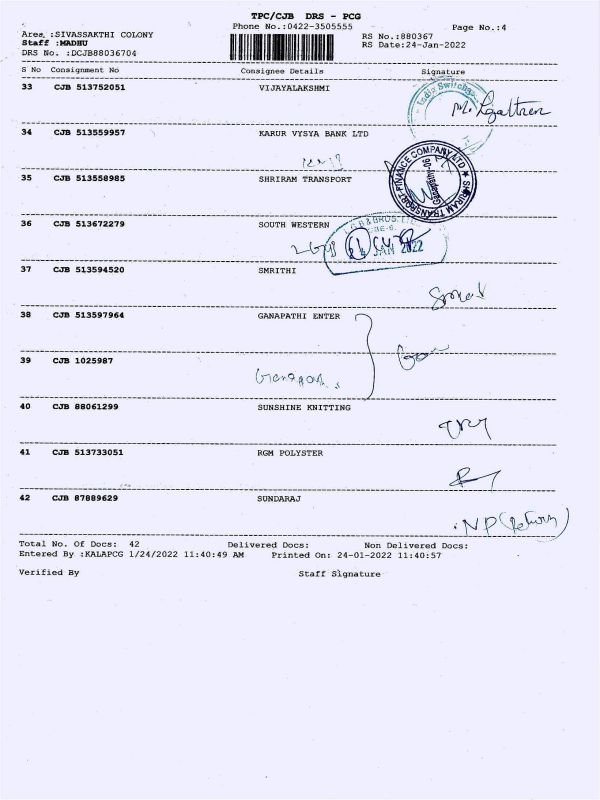 TPC/CJB DRS - PCG
Phone No.:0422-3505555 Page No.:4
Area :SIVASSAKTHI COLONY RS No.:880367
Staff :MADHU RS Date:24-Jan-2022
DRS No. :DCJB88036704
S No Consignment No Consignee Details Signature
33 CJB 513752051 VIJAYALAKSHMI
34 CJB 513559957 KARUR VYSYA BANK LTD
35 CJB 513558985 SHRIRAM TRANSPORT
SHRIRAM TRANSPORT FINANCE COMPANY LTD
36 CJB 513672279 SOUTH WESTERN
JAN 2022
37 CJB 513594520 SMRITHI
38 CJB 513597964 GANAPATHI ENTER
39 CJB 1025987
40 CJB 88061299 SUNSHINE KNITTING
41 CJB 513733051 RGM POLYSTER
42 CJB 87889629 SUNDARAJ
NP (Return)
Total No. Of Docs: 42 Delivered Docs: Non Delivered Docs:
Entered By :KALAPCG 1/24/2022 11:40:49 AM Printed On: 24-01-2022 11:40:57
Verified By Staff Signature